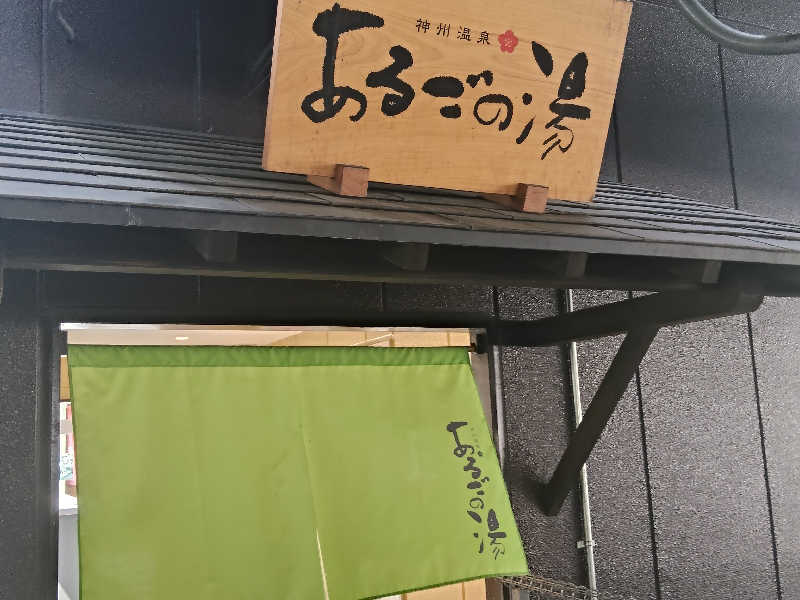 神州温泉
あるごの湯
あるごの湯